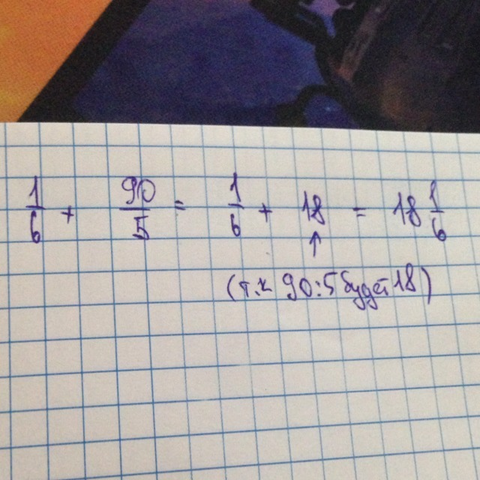 1/6 + 90/5 = 1/6 + 18 = 18 1/6
↑
(т.к 90:5 будет 18)